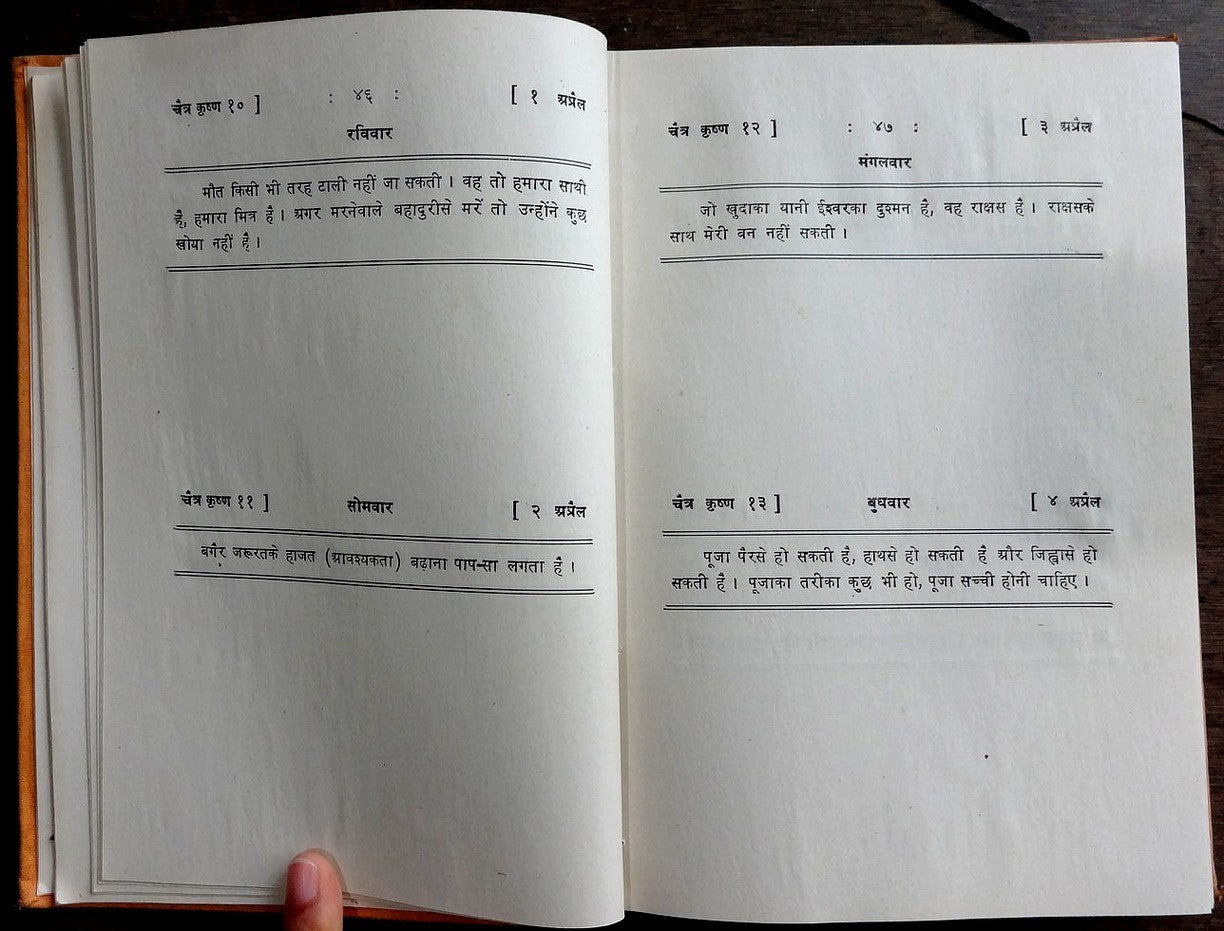 चैत्र कृष्ण १० ] : ४६ : [ १ अप्रैल
रविवार
मौत किसी भी तरह टाली नहीं जा सकती । वह तो हमारा साथी
है, हमारा मित्र है । अगर मरनेवाले बहादुरीसे मरें तो उन्होंने कुछ
खोया नहीं है ।
चैत्र कृष्ण ११ ] सोमवार [ २ अप्रैल
बगैर जरूरतके हाजत (आवश्यकता) बढ़ाना पाप-सा लगता है ।
चैत्र कृष्ण १२ ] : ४७ : [ ३ अप्रैल
मंगलवार
जो खुदाका यानी ईश्वरका दुश्मन है, वह राक्षस है । राक्षसके
साथ मेरी बन नहीं सकती ।
चैत्र कृष्ण १३ ] बुधवार [ ४ अप्रैल
पूजा पैरसे हो सकती है, हाथसे हो सकती है और जिह्वासे हो
सकती है । पूजाका तरीका कुछ भी हो, पूजा सच्ची होनी चाहिए ।